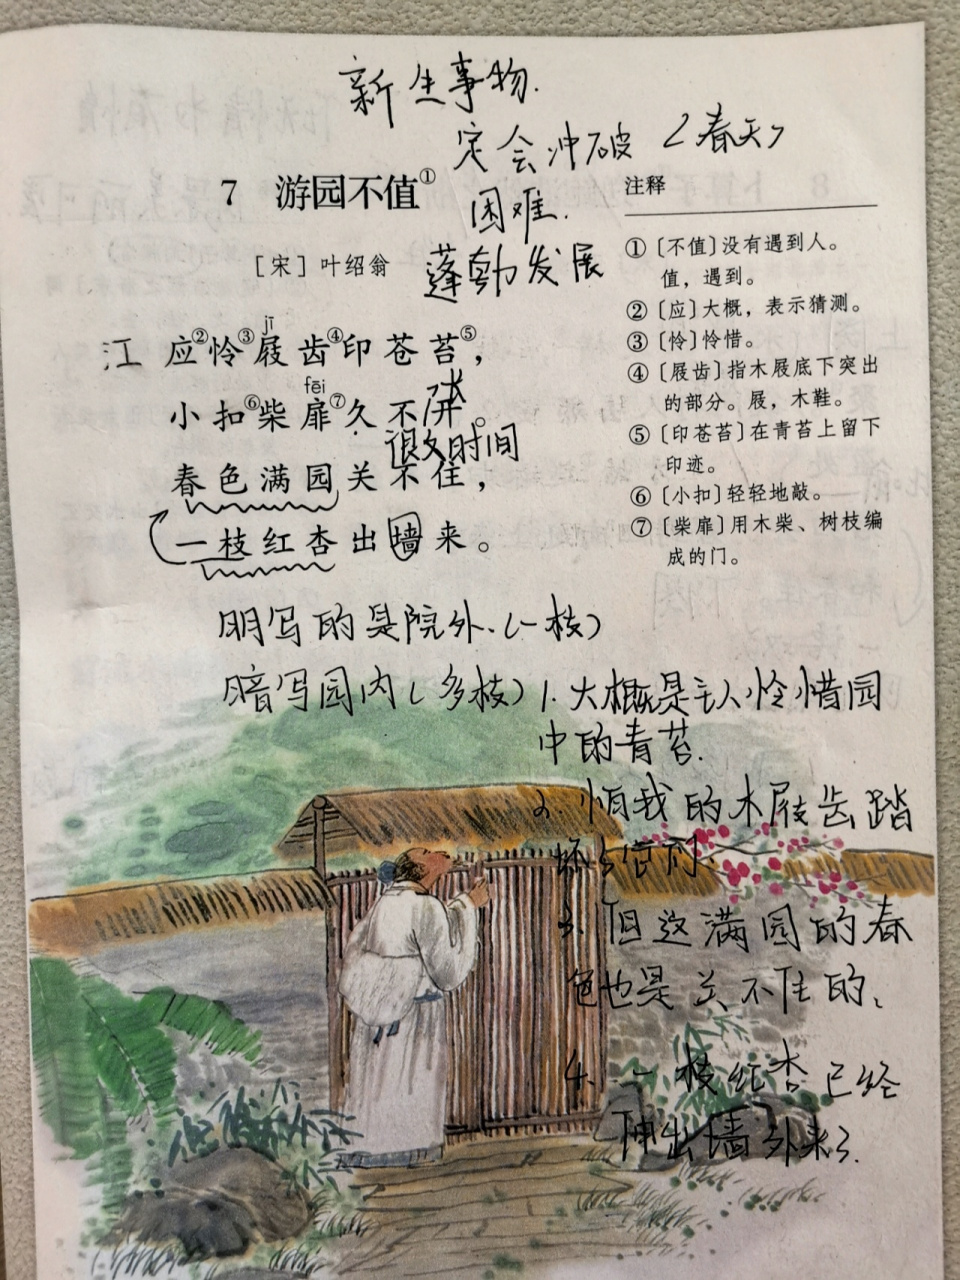 新生事物.
定会冲破 <春天>
困难.
蓬勃发展
7 游园不值①
[宋] 叶绍翁
jī
江 应②怜③屐齿④印苍苔⑤，
fēi
小扣⑥柴扉⑦久不开。
很久时间
春色满园关不住，
一枝红杏出墙来。
注释
①〔不值〕没有遇到人。
值，遇到。
②〔应〕大概，表示猜测。
③〔怜〕怜惜。
④〔屐齿〕指木屐底下突出
的部分。屐，木鞋。
⑤〔印苍苔〕在青苔上留下
印迹。
⑥〔小扣〕轻轻地敲。
⑦〔柴扉〕用木柴、树枝编
成的门。
明写的是院外.(一枝)
暗写园内(多枝)
1. 大概是主人怜惜园
中的青苔.
2. 怕我的木屐齿踏
坏了它们
3. 但这满园的春
色也是关不住的、
4. 一枝红杏已经
伸出墙外来了.